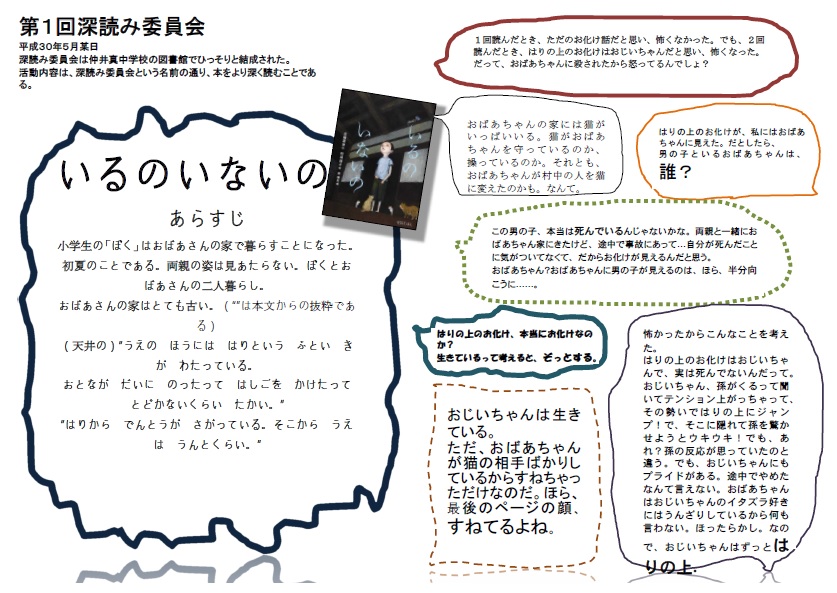 第１回深読み委員会
平成３０年５月某日
深読み委員会は仲井真中学校の図書館でひっそりと結成された。
活動内容は、深読み委員会という名前の通り、本をより深く読むことであ
る。
いるのいないの
あらすじ
小学生の「ぼく」はおばあさんの家で暮らすことになった。
初夏のことである。両親の姿は見あたらない。ぼくとお
ばあさんの二人暮らし。
おばあさんの家はとても古い。（“”は本文からの抜粋であ
る）
（天井の）“うえの　ほうには　はりという　ふとい　き
が　わたっている。
おとなが　だいに　のったって　はしごを　かけたって
とどかないくらい　たかい。”
“はりから　でんとうが　さがっている。そこから　うえ
は　うんとくらい。”
いるの
いないの
１回読んだとき、ただのお化け話だと思い、怖くなかった。でも、２回
読んだとき、はりの上のお化けはおじいちゃんだと思い、怖くなった。
だって、おばあちゃんに殺されたから怒ってるんでしょ？
おばあちゃんの家には猫が
いっぱいいる。猫がおばあ
ちゃんを守っているのか、
操っているのか。それとも、
おばあちゃんが村中の人を猫
に変えたのかも。なんて。
はりの上のお化けが、私にはおばあ
ちゃんに見えた。だとしたら、
男の子といるおばあちゃんは、
誰？
この男の子、本当は死んでいるんじゃないかな。両親と一緒にお
ばあちゃん家にきたけど、途中で事故にあって…自分が死んだこと
に気がついてなくて、だからお化けが見えるんだと思う。
おばあちゃん?おばあちゃんに男の子が見えるのは、ほら、半分向
こうに……。
はりの上のお化け、本当にお化けなの
か？
生きているって考えると、ぞっとする。
おじいちゃんは生き
ている。
ただ、おばあちゃん
が猫の相手ばかりし
ているからすねちゃっ
ただけなのだ。ほら、
最後のページの顔、
すねてるよね。
怖かったからこんなことを考え
た。
はりの上のお化けはおじいちゃ
んで、実は死んでないんだって。
おじいちゃん、孫がくるって聞
いてテンション上がっちゃって、
その勢いではりの上にジャン
プ！で、そこに隠れて孫を驚か
せようとウキウキ！でも、あ
れ？孫の反応が思っていたのと
違う。でも、おじいちゃんにも
プライドがある。途中でやめた
なんて言えない。おばあちゃん
はおじいちゃんのイタズラ好き
にはうんざりしているから何も
言わない。ほったらかし。なの
で、おじいちゃんはずっとは
りの上.